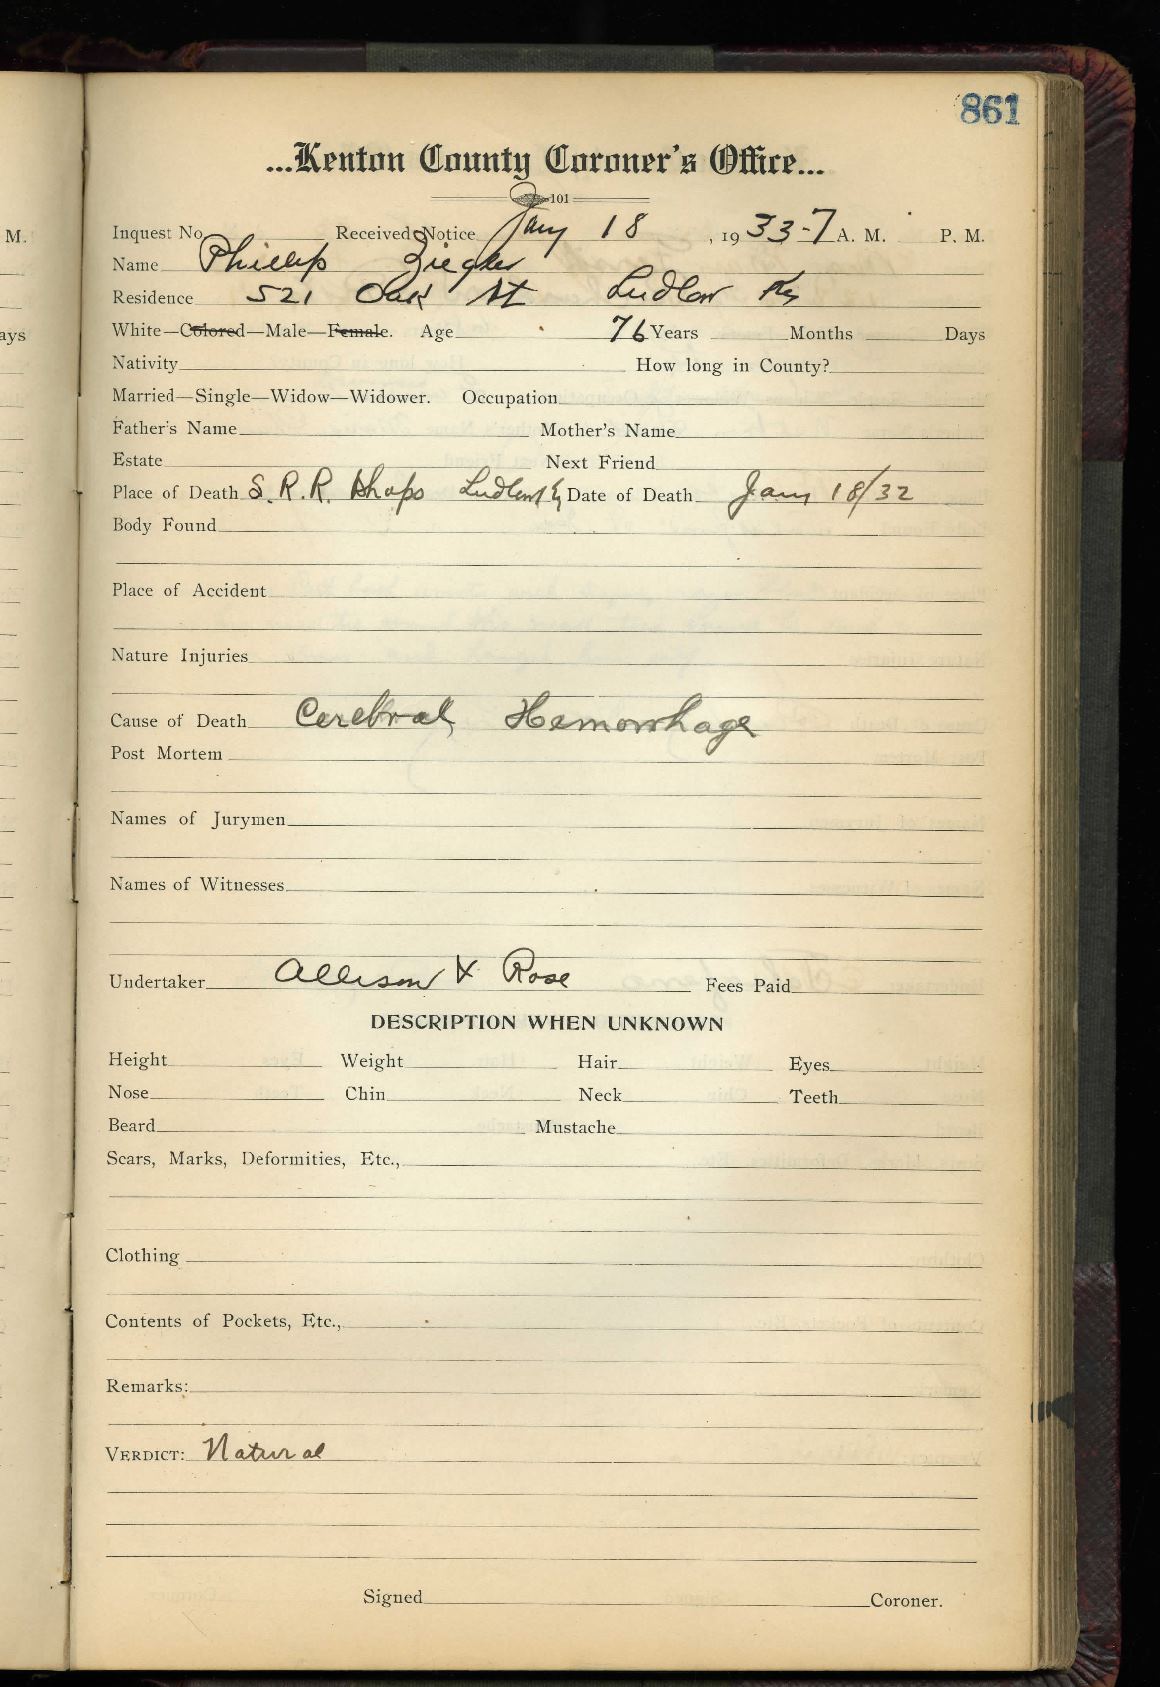 861
...Kenton County Coroner's Office...
101
M. Inquest No. Received Notice Jany 18, 1933-7 A. M. P. M.
Name Phillip Ziegler
Residence 521 Oak St Ludlow Ky
ays White—Colored—Male—Female. Age 76 Years Months Days
Nativity How long in County?
Married—Single—Widow—Widower. Occupation
Father's Name Mother's Name
Estate Next Friend
Place of Death S. R. R. Shops Ludlow Ky Date of Death Jany 18/32
Body Found
Place of Accident
Nature Injuries
Cause of Death Cerebral Hemorrhage
Post Mortem
Names of Jurymen
Names of Witnesses
Undertaker Allison & Rose Fees Paid
DESCRIPTION WHEN UNKNOWN
Height Weight Hair Eyes
Nose Chin Neck Teeth
Beard Mustache
Scars, Marks, Deformities, Etc.,
Clothing
Contents of Pockets, Etc.,
Remarks:
VERDICT: Natural
Signed Coroner.